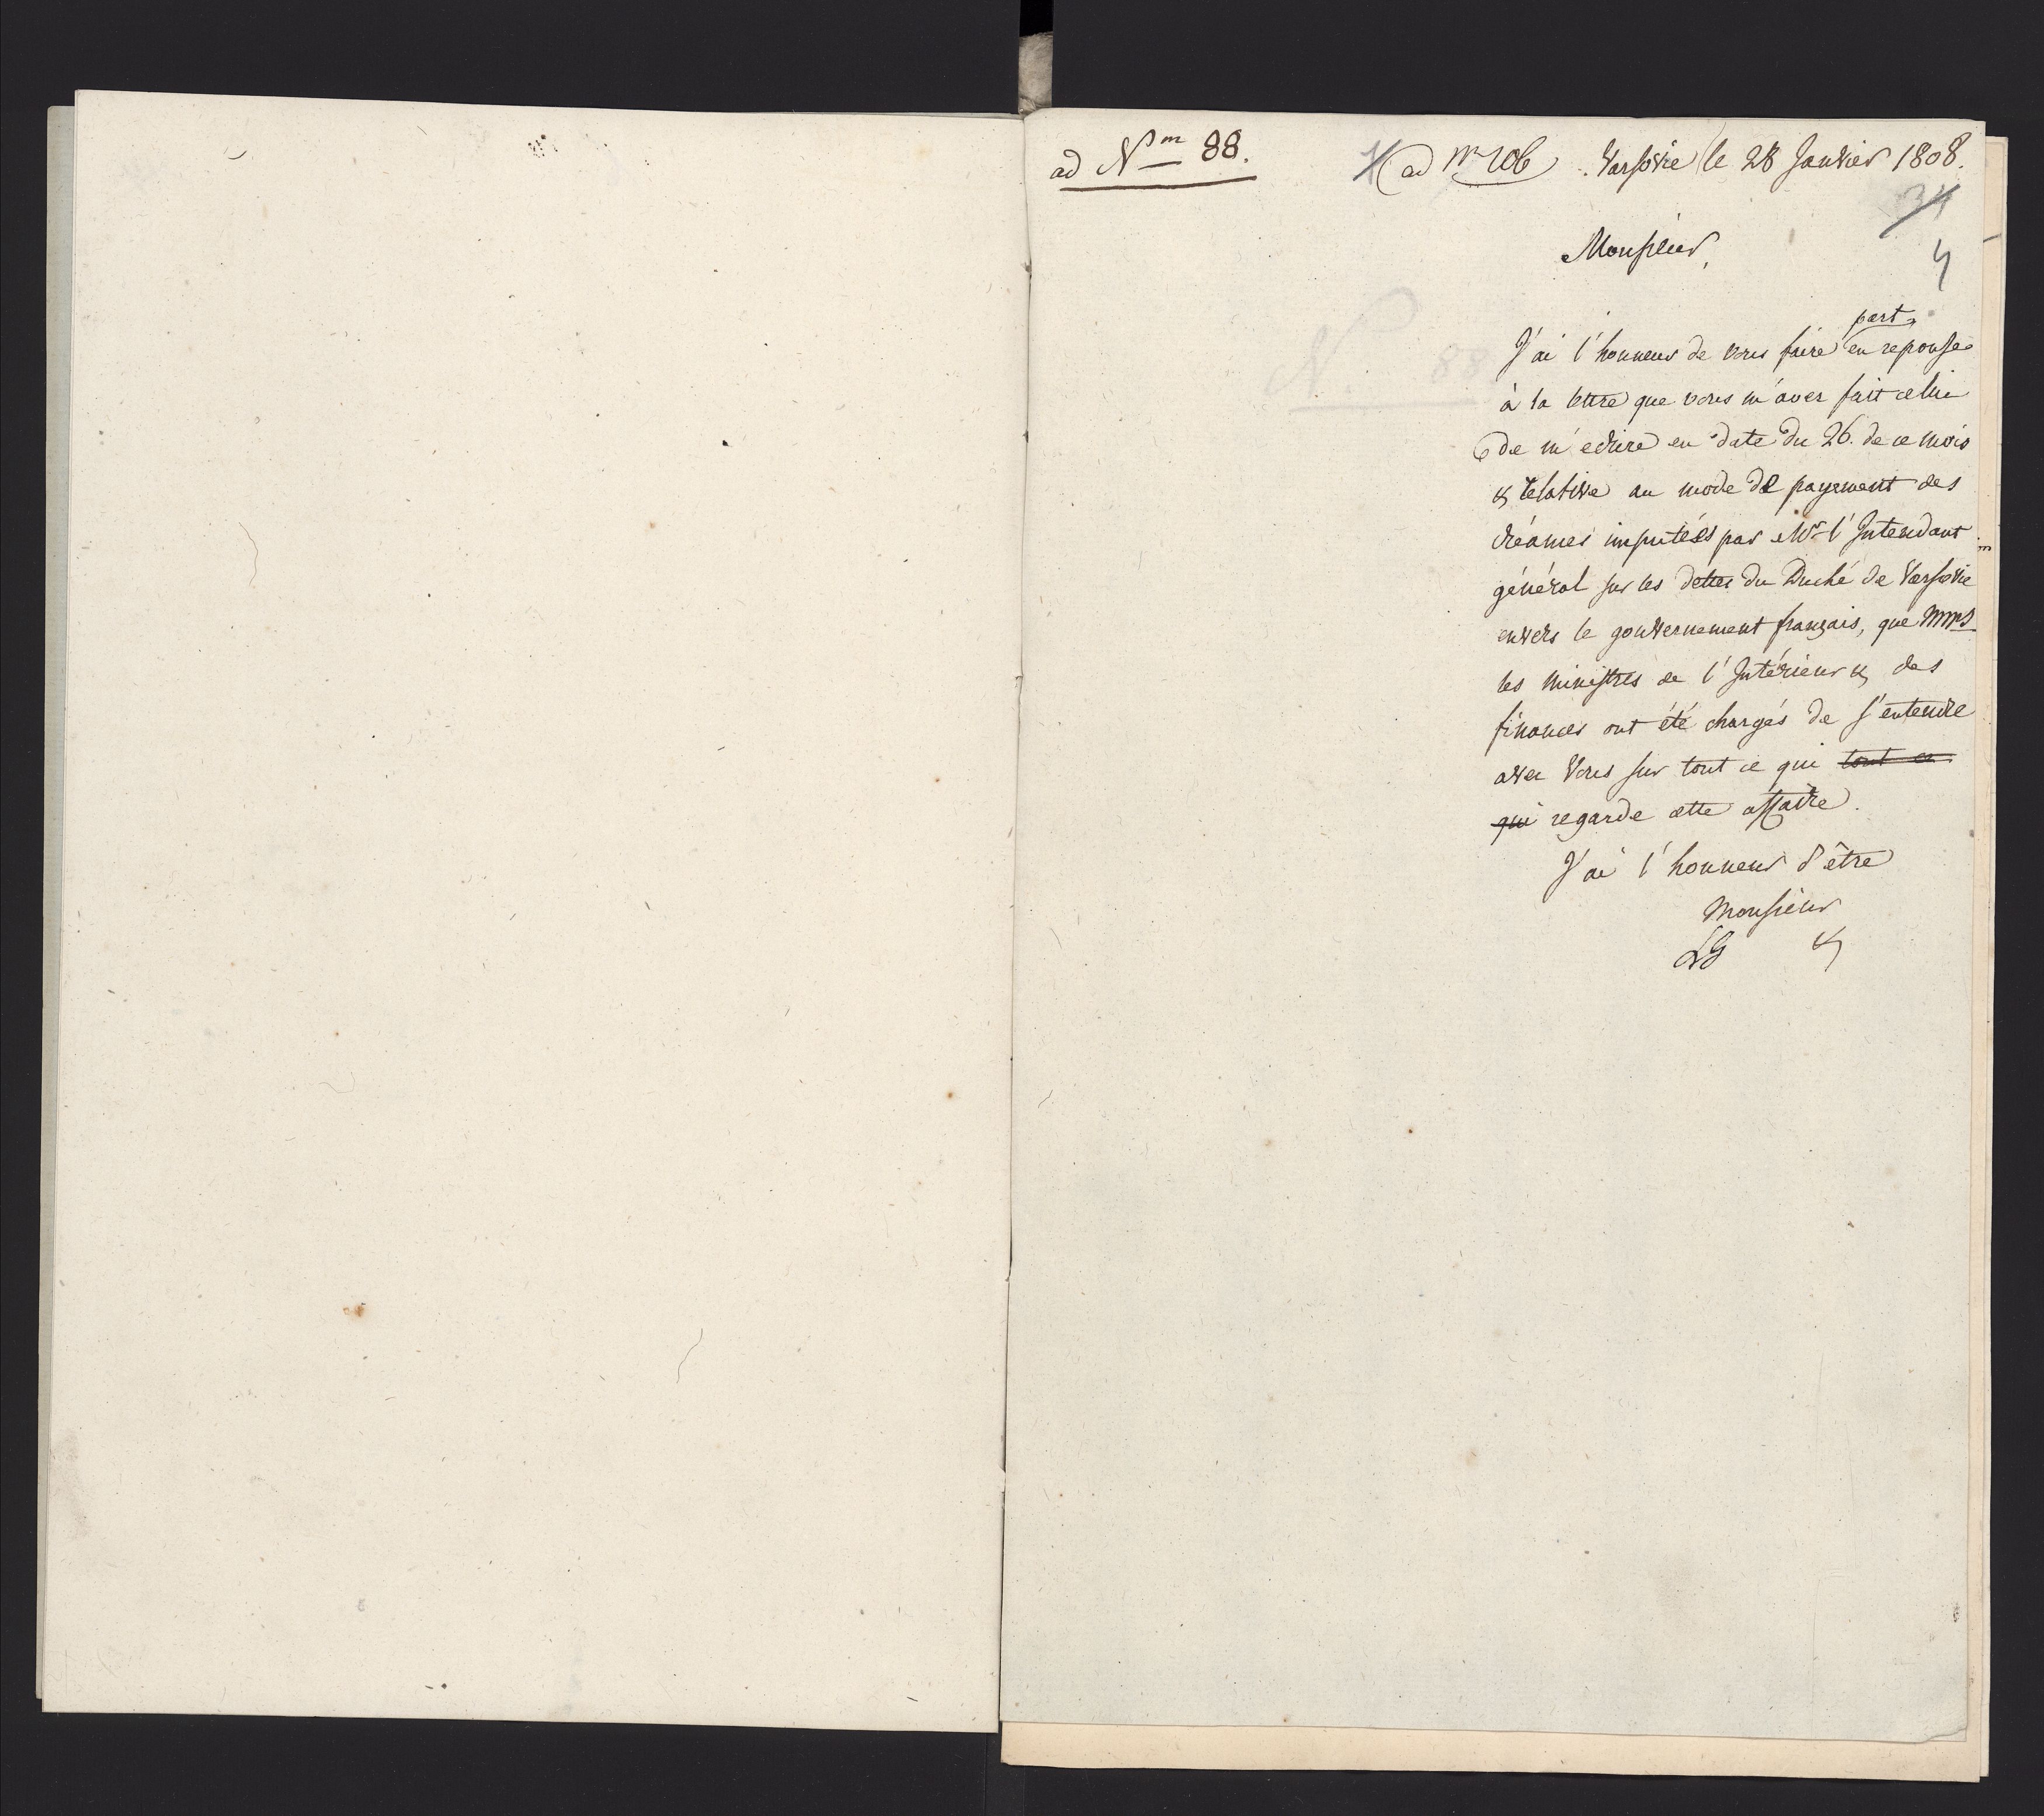 ad Nm 88.
ad Nr 106 Varsovie le 28 Janvier 1808.
34
4
Monsieur,
part
J'ai l'honneur de vous faire en reponse
à la lettre que vous m'avez fait celui
de m'ecrire en date du 26. de ce mois
& relative au mode de payement des
créances imputées par Mr l'Intendant
général sur les dettes du Duché de Varsovie
envers le gouvernement français, que MMrs
les ministres de l'Intérieur & des
finances ont été chargés de s'entendre
avec Vous sur tout ce qui tout ce
qui regarde cette affaire.
J'ai l'honneur d'être
Monsieur
LG &
N. 88